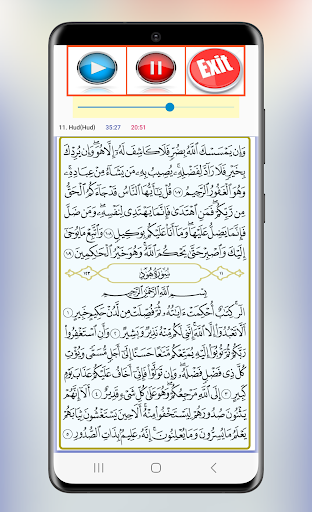 Exit
11. Hud(Hud) 35:27 20:51
وَإِن يَمْسَسْكَ ٱللَّهُ بِضُرٍّ فَلَا كَاشِفَ لَهُۥٓ إِلَّا هُوَ وَإِن يُرِدْكَ
بِخَيْرٍ فَلَا رَآدَّ لِفَضْلِهِۦ يُصِيبُ بِهِۦ مَن يَشَآءُ مِنْ عِبَادِهِۦ
وَهُوَ ٱلْغَفُورُ ٱلرَّحِيمُ ١٠٧ قُلْ يَٰٓأَيُّهَا ٱلنَّاسُ قَدْ جَآءَكُمُ ٱلْحَقُّ
مِن رَّبِّكُمْ فَمَنِ ٱهْتَدَىٰ فَإِنَّمَا يَهْتَدِى لِنَفْسِهِۦ وَمَن ضَلَّ
فَإِنَّمَا يَضِلُّ عَلَيْهَا وَمَآ أَنَا۠ عَلَيْكُم بِوَكِيلٍ ١٠٨ وَٱتَّبِعْ مَا يُوحَىٰٓ
إِلَيْكَ وَٱصْبِرْ حَتَّىٰ يَحْكُمَ ٱللَّهُ وَهُوَ خَيْرُ ٱلْحَٰكِمِينَ ١٠٩
١١ سُورَةُ هُودٍ ١٢٣
بِسْمِ ٱللَّهِ ٱلرَّحْمَٰنِ ٱلرَّحِيمِ
الٓر كِتَٰبٌ أُحْكِمَتْ ءَايَٰتُهُۥ ثُمَّ فُصِّلَتْ مِن لَّدُنْ حَكِيمٍ خَبِيرٍ ١
أَلَّا تَعْبُدُوٓا۟ إِلَّا ٱللَّهَ إِنَّنِى لَكُم مِّنْهُ نَذِيرٌ وَبَشِيرٌ ٢ وَأَنِ ٱسْتَغْفِرُوا۟
رَبَّكُمْ ثُمَّ تُوبُوٓا۟ إِلَيْهِ يُمَتِّعْكُم مَّتَٰعًا حَسَنًا إِلَىٰٓ أَجَلٍ مُّسَمًّى وَيُؤْتِ
كُلَّ ذِى فَضْلٍ فَضْلَهُۥ وَإِن تَوَلَّوْا۟ فَإِنِّىٓ أَخَافُ عَلَيْكُمْ عَذَابَ يَوْمٍ
كَبِيرٍ ٣ إِلَى ٱللَّهِ مَرْجِعُكُمْ وَهُوَ عَلَىٰ كُلِّ شَىْءٍ قَدِيرٌ ٤ أَلَآ إِنَّهُمْ
يَثْنُونَ صُدُورَهُمْ لِيَسْتَخْفُوا۟ مِنْهُ أَلَا حِينَ يَسْتَغْشُونَ ثِيَابَهُمْ
يَعْلَمُ مَا يُسِرُّونَ وَمَا يُعْلِنُونَ إِنَّهُۥ عَلِيمٌۢ بِذَاتِ ٱلصُّدُورِ ٥